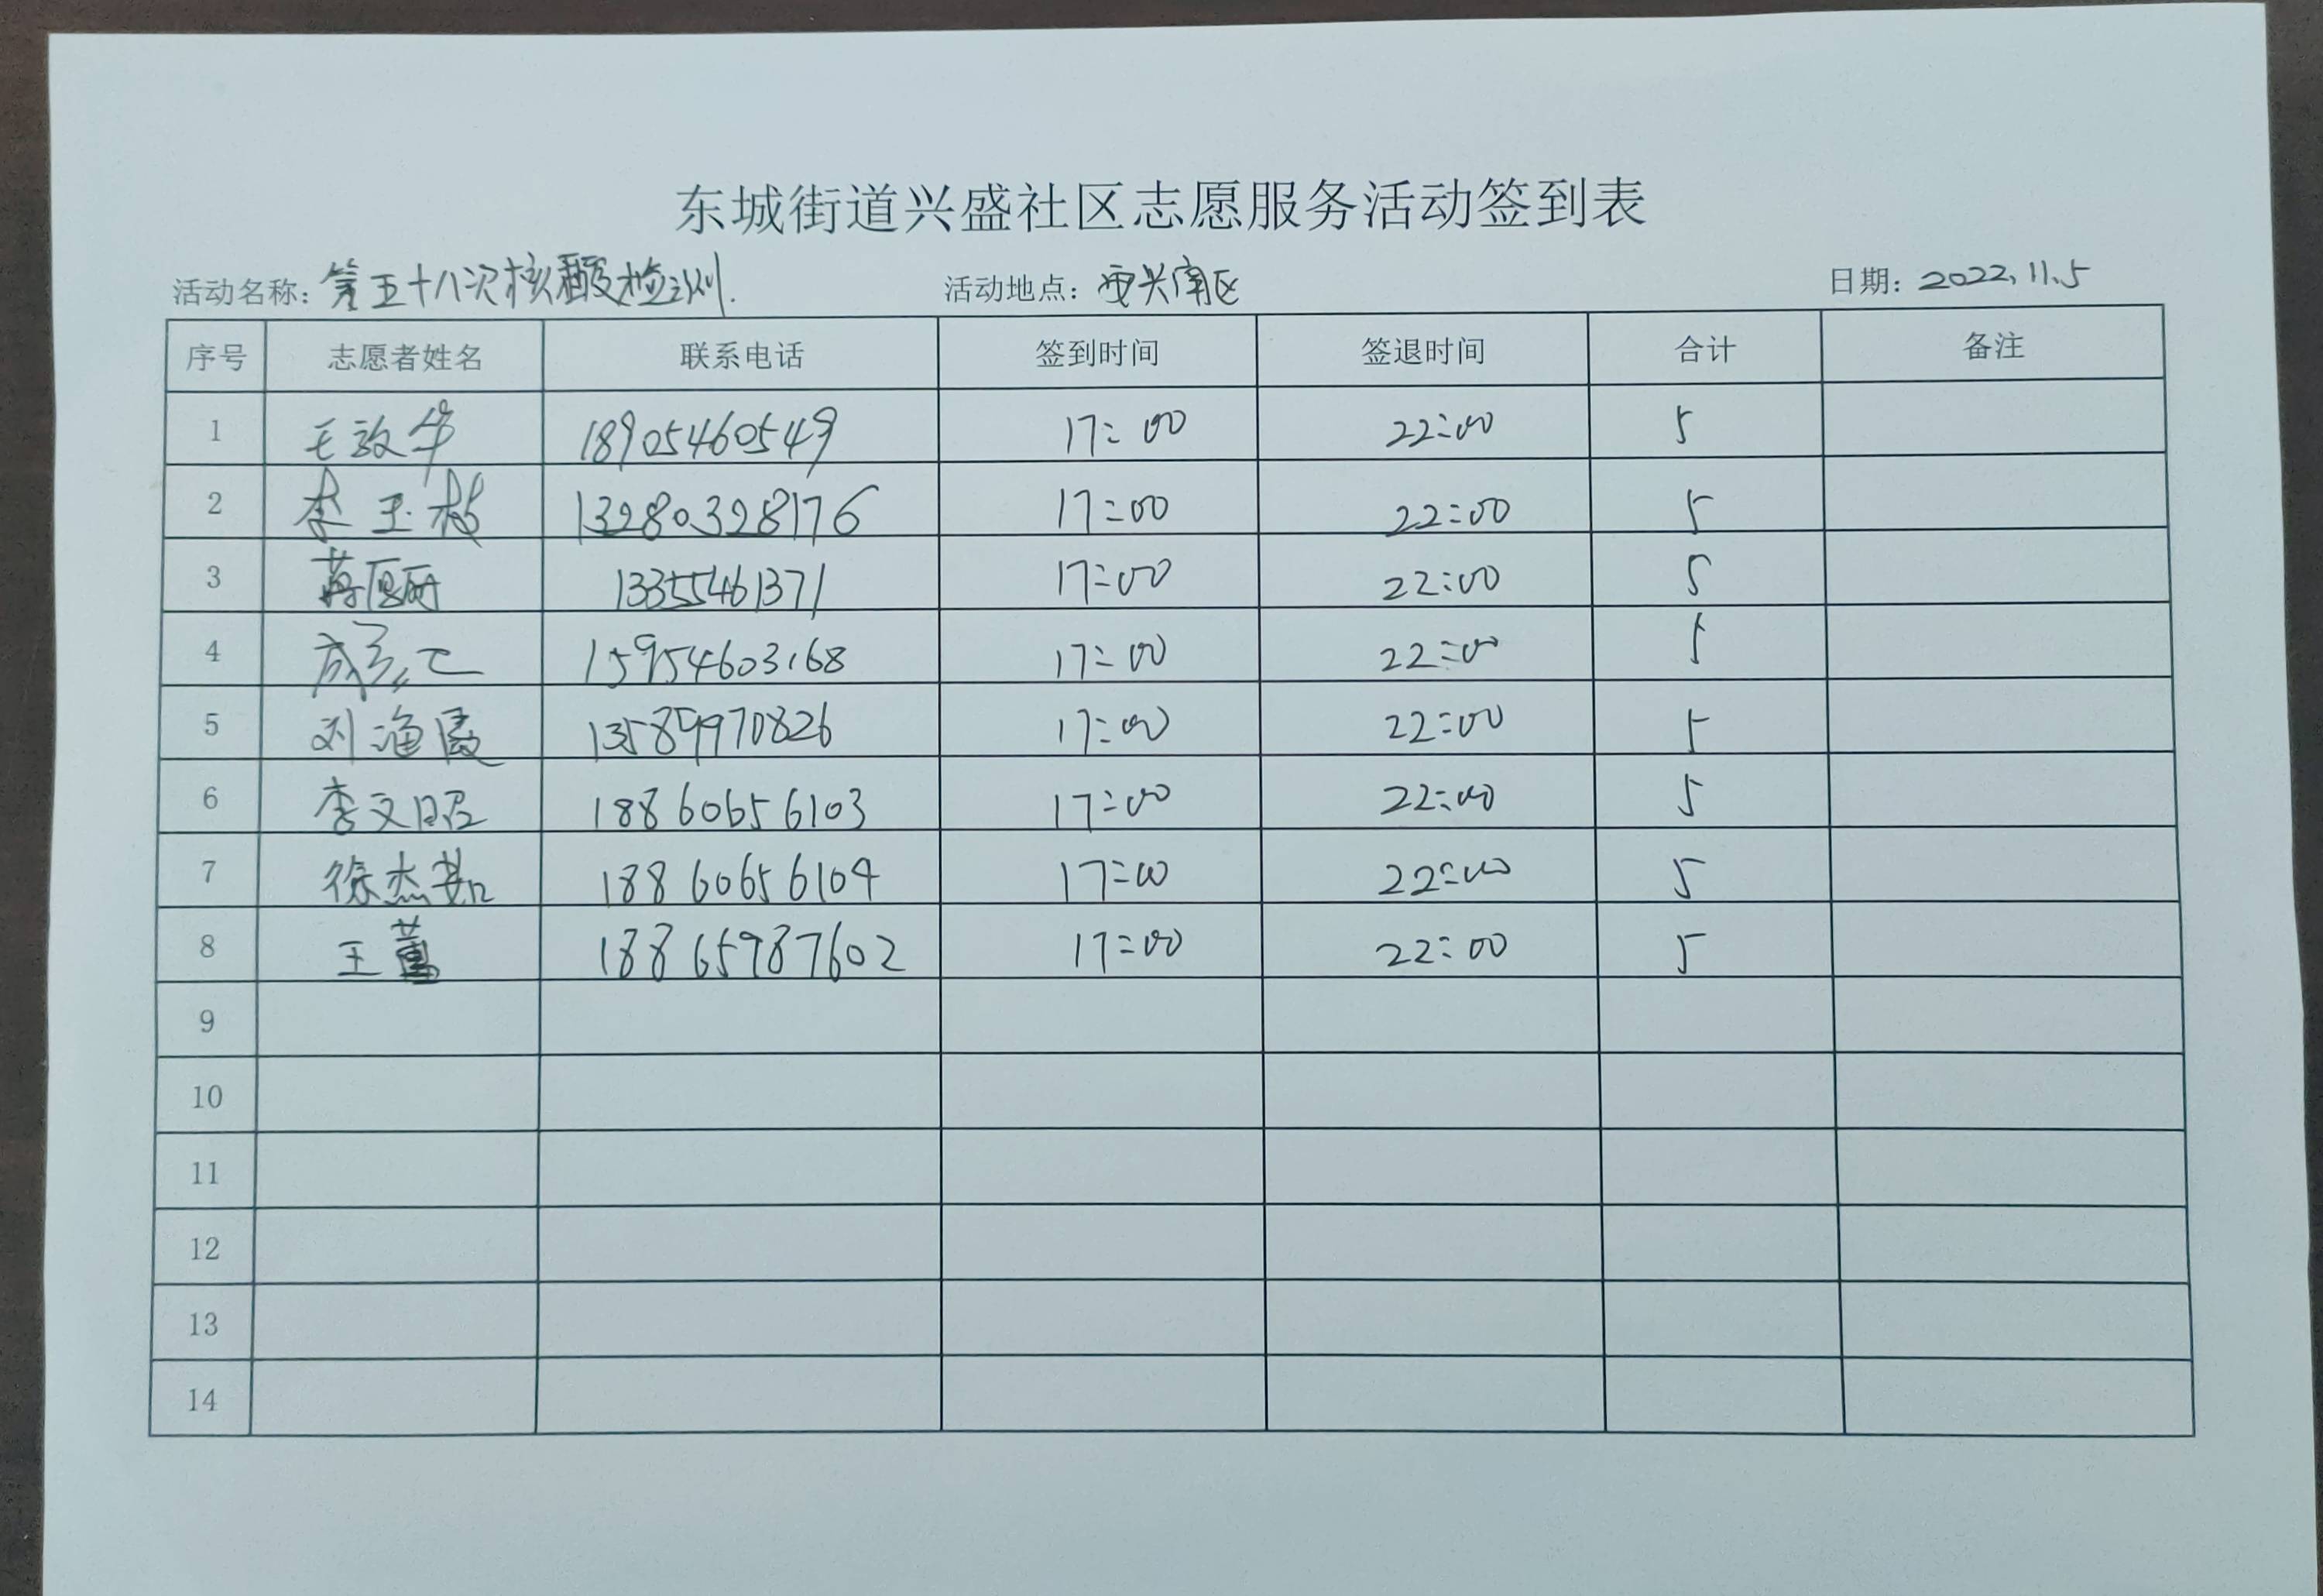 东城街道兴盛社区志愿服务活动签到表
活动名称：第五十八次核酸检测. 活动地点：安兴南区 日期：2022.11.5
序号 志愿者姓名 联系电话 签到时间 签退时间 合计 备注
1 王效华 18905460549 17:00 22:00 5
2 李玉 13280328176 17:00 22:00 5
3 蒋 13355461371 17:00 22:00 5
4 成 15954603168 17:00 22:00 5
5 刘海霞 13589970826 17:00 22:00 5
6 李文昭 18860656103 17:00 22:00 5
7 徐杰茹 18860656104 17:00 22:00 5
8 王 18865987602 17:00 22:00 5
9
10
11
12
13
14